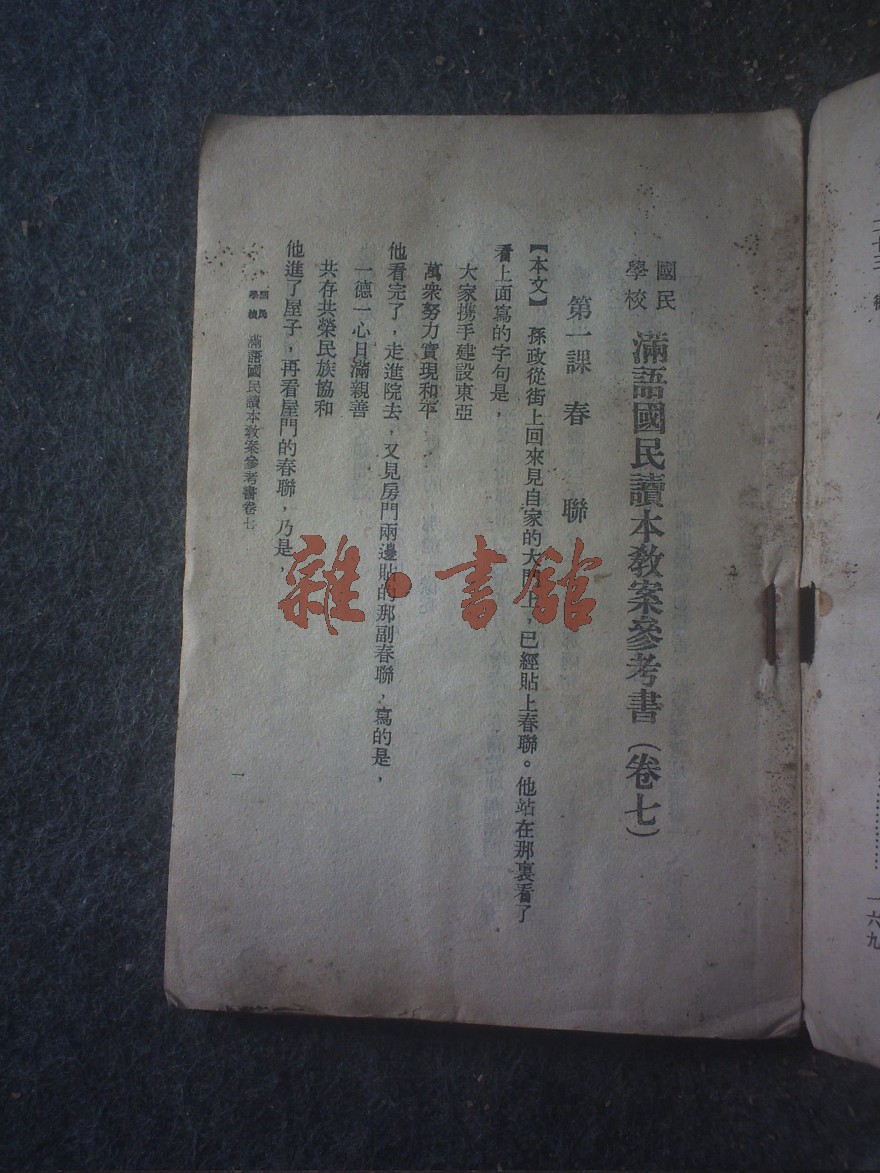 國民
學校
滿語國民讀本教案參考書（卷七）
第一課 春聯
【本文】 孫政從街上回來見自家的大門上，已經貼上春聯。他站在那裏看了
看上面寫的字句是，
大家携手建設東亞
萬衆努力實現和平
他看完了，走進院去，又見房門兩邊貼的那副春聯，寫的是，
一德一心日滿親善
共存共榮民族協和
他進了屋子，再看屋門的春聯，乃是，
國民
學校
滿語國民讀本教案參考書卷七
一
一六九
雜·書館